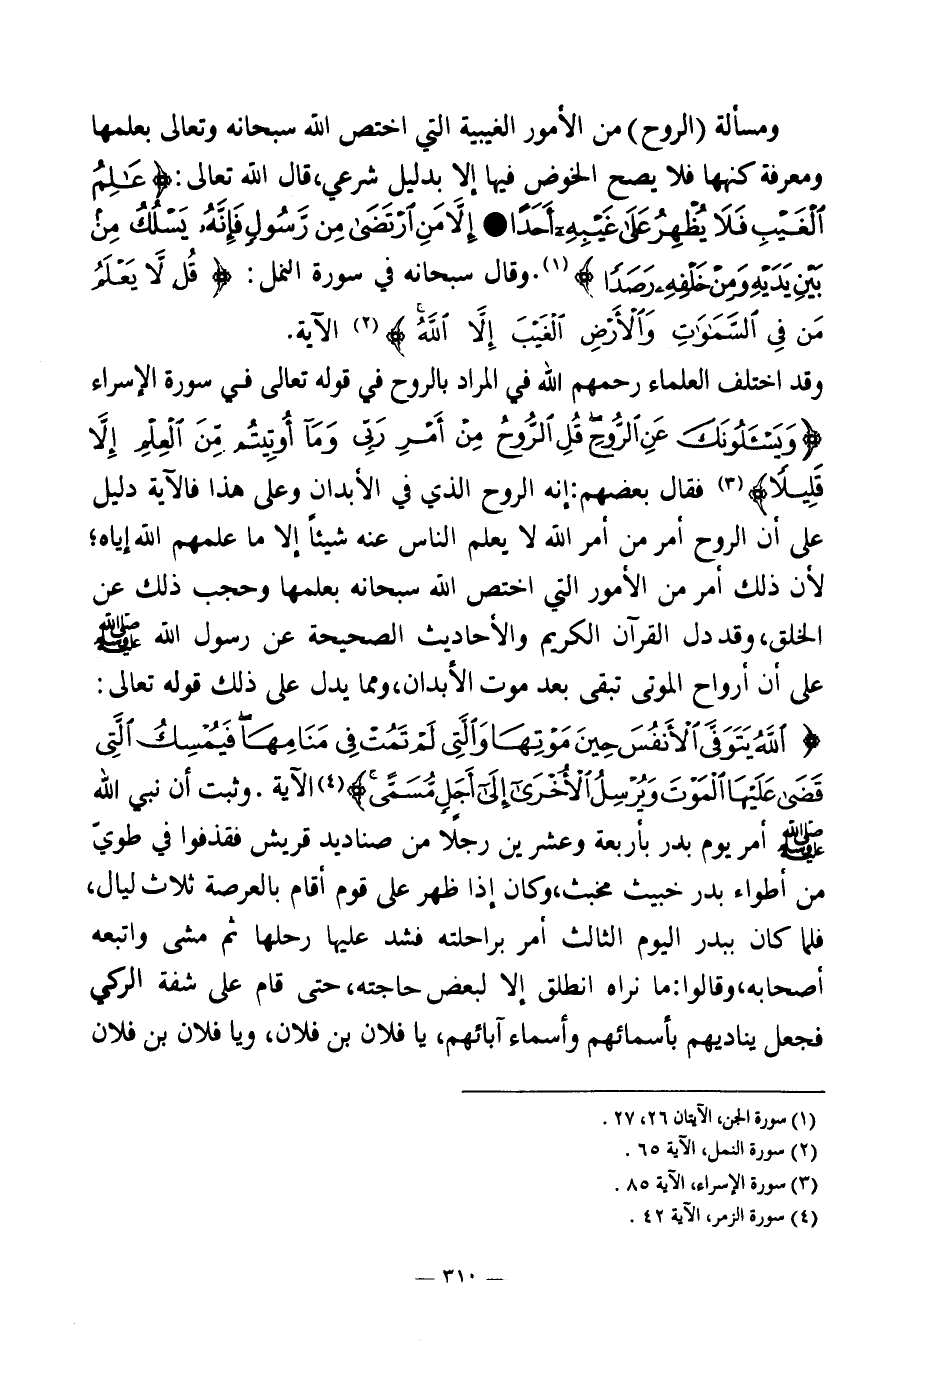 ومسألة (الروح) من الأمور الغيبية التي اختص الله سبحانه وتعالى بعلمها
ومعرفة كنهها فلا يصح الخوض فيها إلا بدليل شرعي،قال الله تعالى: ﴿ عَـٰلِمُ
ٱلْغَيْبِ فَلَا يُظْهِرُ عَلَىٰ غَيْبِهِۦٓ أَحَدًا ● إِلَّا مَنِ ٱرْتَضَىٰ مِن رَّسُولٍ فَإِنَّهُۥ يَسْلُكُ مِنۢ
بَيْنِ يَدَيْهِ وَمِنْ خَلْفِهِۦ رَصَدًا ﴾ (١).وقال سبحانه في سورة النمل: ﴿ قُل لَّا يَعْلَمُ
مَن فِي ٱلسَّمَـٰوَٰتِ وَٱلْأَرْضِ ٱلْغَيْبَ إِلَّا ٱللَّهُ ۚ ﴾ (٢) الآية.
وقد اختلف العلماء رحمهم الله في المراد بالروح في قوله تعالى في سورة الإسراء
﴿ وَيَسْـَٔلُونَكَ عَنِ ٱلرُّوحِ ۖ قُلِ ٱلرُّوحُ مِنْ أَمْرِ رَبِّى وَمَآ أُوتِيتُم مِّنَ ٱلْعِلْمِ إِلَّا
قَلِيـلًا﴾ (٣) فقال بعضهم:إنه الروح الذي في الأبدان وعلى هذا فالآية دليل
على أن الروح أمر من أمر الله لا يعلم الناس عنه شيئاً إلا ما علمهم الله إياه؛
لأن ذلك أمر من الأمور التي اختص الله سبحانه بعلمها وحجب ذلك عن
الخلق،وقد دل القرآن الكريم والأحاديث الصحيحة عن رسول الله ﷺ
على أن أرواح الموتى تبقى بعد موت الأبدان،ومما يدل على ذلك قوله تعالى:
﴿ ٱللَّهُ يَتَوَفَّى ٱلْأَنفُسَ حِينَ مَوْتِهَا وَٱلَّتِى لَمْ تَمُتْ فِى مَنَامِهَا ۖ فَيُمْسِكُ ٱلَّتِى
قَضَىٰ عَلَيْهَا ٱلْمَوْتَ وَيُرْسِلُ ٱلْأُخْرَىٰٓ إِلَىٰٓ أَجَلٍ مُّسَمًّى ۚ ﴾ (٤) الآية . وثبت أن نبي الله
ﷺ أمر يوم بدر بأربعة وعشرين رجلًا من صناديد قريش فقذفوا في طويّ
من أطواء بدر خبيث مخبث،وكان إذا ظهر على قوم أقام بالعرصة ثلاث ليال،
فلما كان ببدر اليوم الثالث أمر براحلته فشد عليها رحلها ثم مشى واتبعه
أصحابه،وقالوا:ما نراه انطلق إلا لبعض حاجته، حتى قام على شفة الركي
فجعل يناديهم بأسمائهم وأسماء آبائهم، يا فلان بن فلان، ويا فلان بن فلان
(١) سورة الجن، الآيتان ٢٦، ٢٧ .
(٢) سورة النمل، الآية ٦٥ .
(٣) سورة الإسراء، الآية ٨٥ .
(٤) سورة الزمر، الآية ٤٢ .
— ٣١٠ —